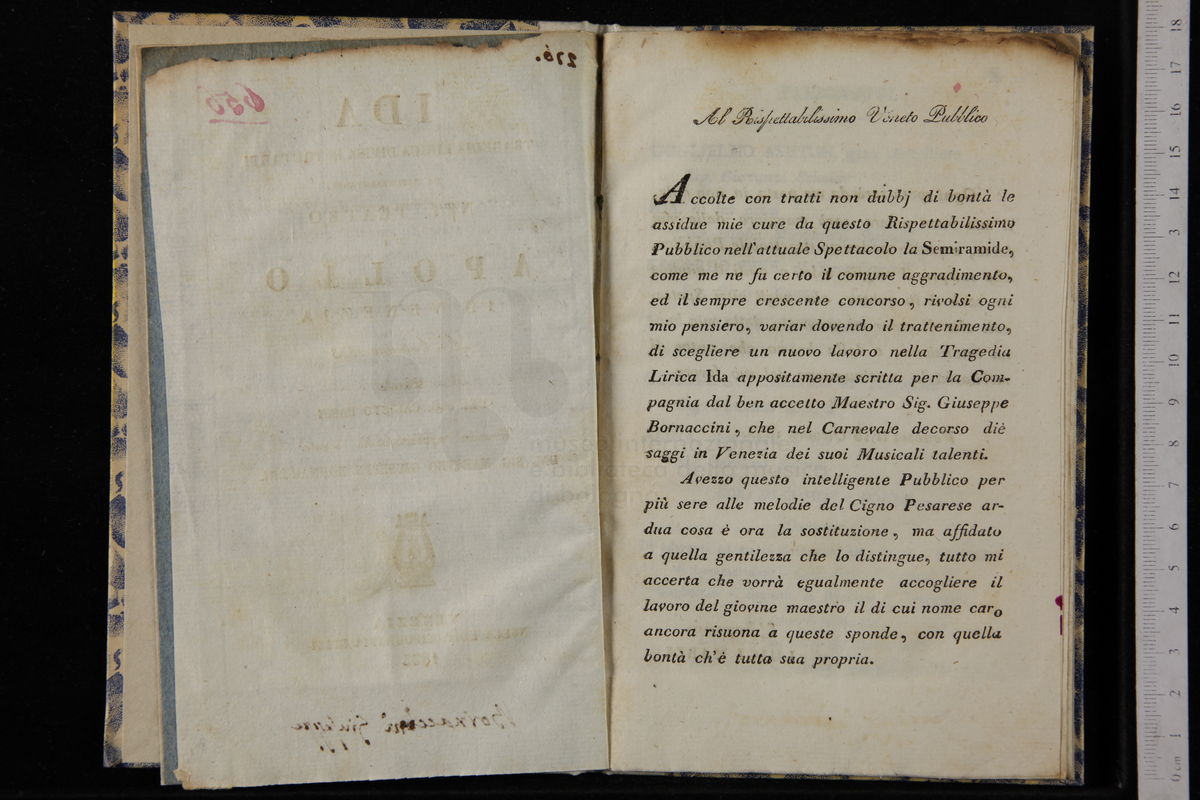 276.
650
IDA
APOLLO
Al Rispettabilissimo Veneto Pubblico
Accolte con tratti non dubbj di bontà le
assidue mie cure da questo Rispettabilissimo
Pubblico nell'attuale Spettacolo la Semiramide,
come me ne fu certo il comune aggradimento,
ed il sempre crescente concorso, rivolsi ogni
mio pensiero, variar dovendo il trattenimento,
di scegliere un nuovo lavoro nella Tragedia
Lirica Ida appositamente scritta per la Com-
pagnia dal ben accetto Maestro Sig. Giuseppe
Bornaccini, che nel Carnevale decorso diè
saggi in Venezia dei suoi Musicali talenti.
Avezzo questo intelligente Pubblico per
più sere alle melodie del Cigno Pesarese ar-
dua cosa è ora la sostituzione, ma affidato
a quella gentilezza che lo distingue, tutto mi
accerta che vorrà egualmente accogliere il
lavoro del giovine maestro il di cui nome caro
ancora risuona a queste sponde, con quella
bontà ch'è tutta sua propria.
0 cm 1 2 3 4 5 6 7 8 9 10 11 12 13 14 15 16 17 18